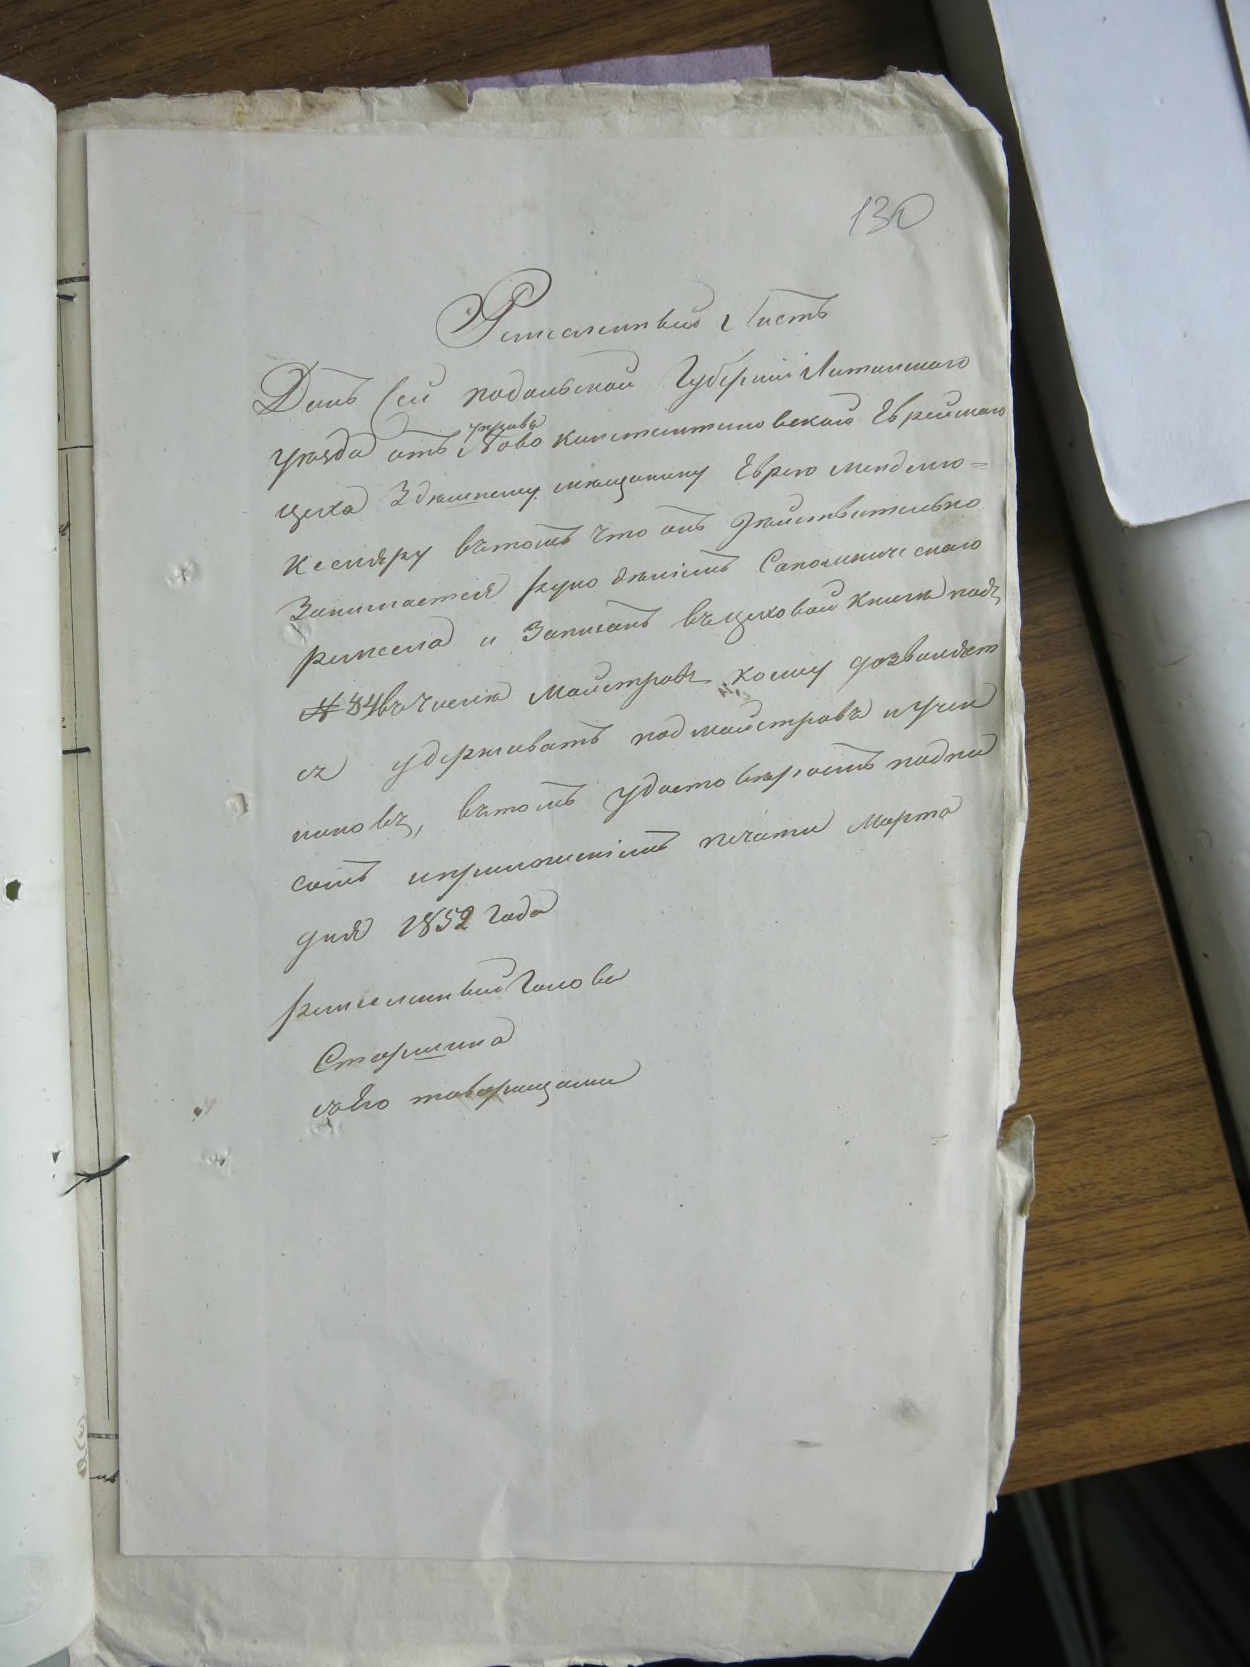 130
Ремесленный Листъ
Данъ Сей подольской Губерніи Литинскаго
уезда отъ Ново константиновской Еврейскаго
управы
цеха Здешнему мещанину Еврею менделю=
Кесляру въ томъ что онъ Действительно
Занимается рукоделіемъ Сапожническаго
ремесла и Записанъ въ цеховой Книге подъ
№ 34 въ числе Майстровъ, кому дозволяет
ся удерживать подмайстровъ и учен
иковъ, въ томъ удостоверяетъ подпи
сомъ и приложеніемъ печати Марта
дня 1852 года
ремесленный Голова
Старшина
съ Его товарищами